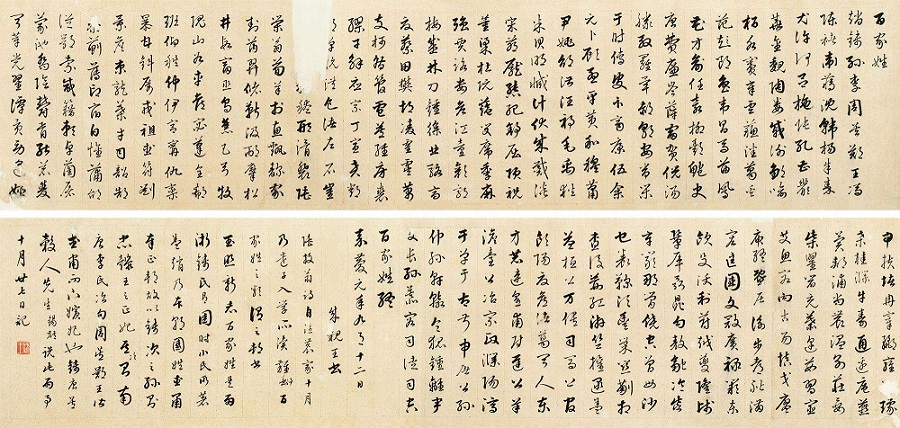 百家姓
趙錢孫李周吳鄭王馮
陳褚衛蔣沈韓楊朱秦
尤許何呂施張孔曹嚴
華金魏陶姜戚謝鄒喻
柏水竇章雲蘇潘葛奚
范彭郎魯韋昌馬苗鳳
花方俞任袁柳酆鮑史
唐費廉岑薛雷賀倪湯
滕殷羅畢郝鄔安常樂
于時傅皮卞齊康伍余
元卜顧孟平黃和穆蕭
尹姚邵湛汪祁毛禹狄
米貝明臧計伏成戴談
宋茅龐熊紀舒屈項祝
董梁杜阮藍閔席季麻
強賈路婁危江童顏郭
梅盛林刁鍾徐邱駱高
夏蔡田樊胡凌霍虞萬
支柯昝管盧莫經房裘
繆干解應宗丁宣賁鄧
單杭洪包諸左石崔
嵇邢滑裴陸
榮翁荀羊於惠甄麴家
封芮羿儲靳汲邴糜松
井段富巫烏焦巴弓牧
隗山谷車侯宓蓬全郗
班仰秋仲伊宮寧仇欒
暴甘鈄厲戎祖武符劉
景詹束龍葉幸司韶郜
黎薊薄印宿白懷蒲邰
從鄂索咸籍賴卓藺屠
蒙池喬陰鬱胥能蒼雙
聞莘黨翟譚貢勞逄姬
申扶堵冉宰酈雍璩
桑桂濮牛壽通邊扈燕
冀郟浦尚農溫別莊晏
柴瞿閻充慕連茹習宦
艾魚容向古易慎戈廖
庾終暨居衡步都耿滿
弘匡國文寇廣祿闕東
歐殳沃利蔚越夔隆師
鞏厙聶晁勾敖融冷訾
辛闞那簡饒空曾毋沙
乜養鞠須豐巢關蒯相
查後荊紅游竺權逯蓋
益桓公万俟司馬上官
歐陽夏侯諸葛聞人東
方赫連皇甫尉遲公羊
澹臺公冶宗政濮陽淳
于單于太叔申屠公孫
仲孫軒轅令狐鍾離宇
文長孫慕容司徒司空
百家姓終
嘉慶元年九月十二日
成親王書
十月
乃遣子入學
家姓
百家姓
浙錢氏
本朝國姓
孫
忠懿王之正妃
南
唐李氏次則周吳鄭王
武肅而下嬪妃也
人先生
十月廿七日記